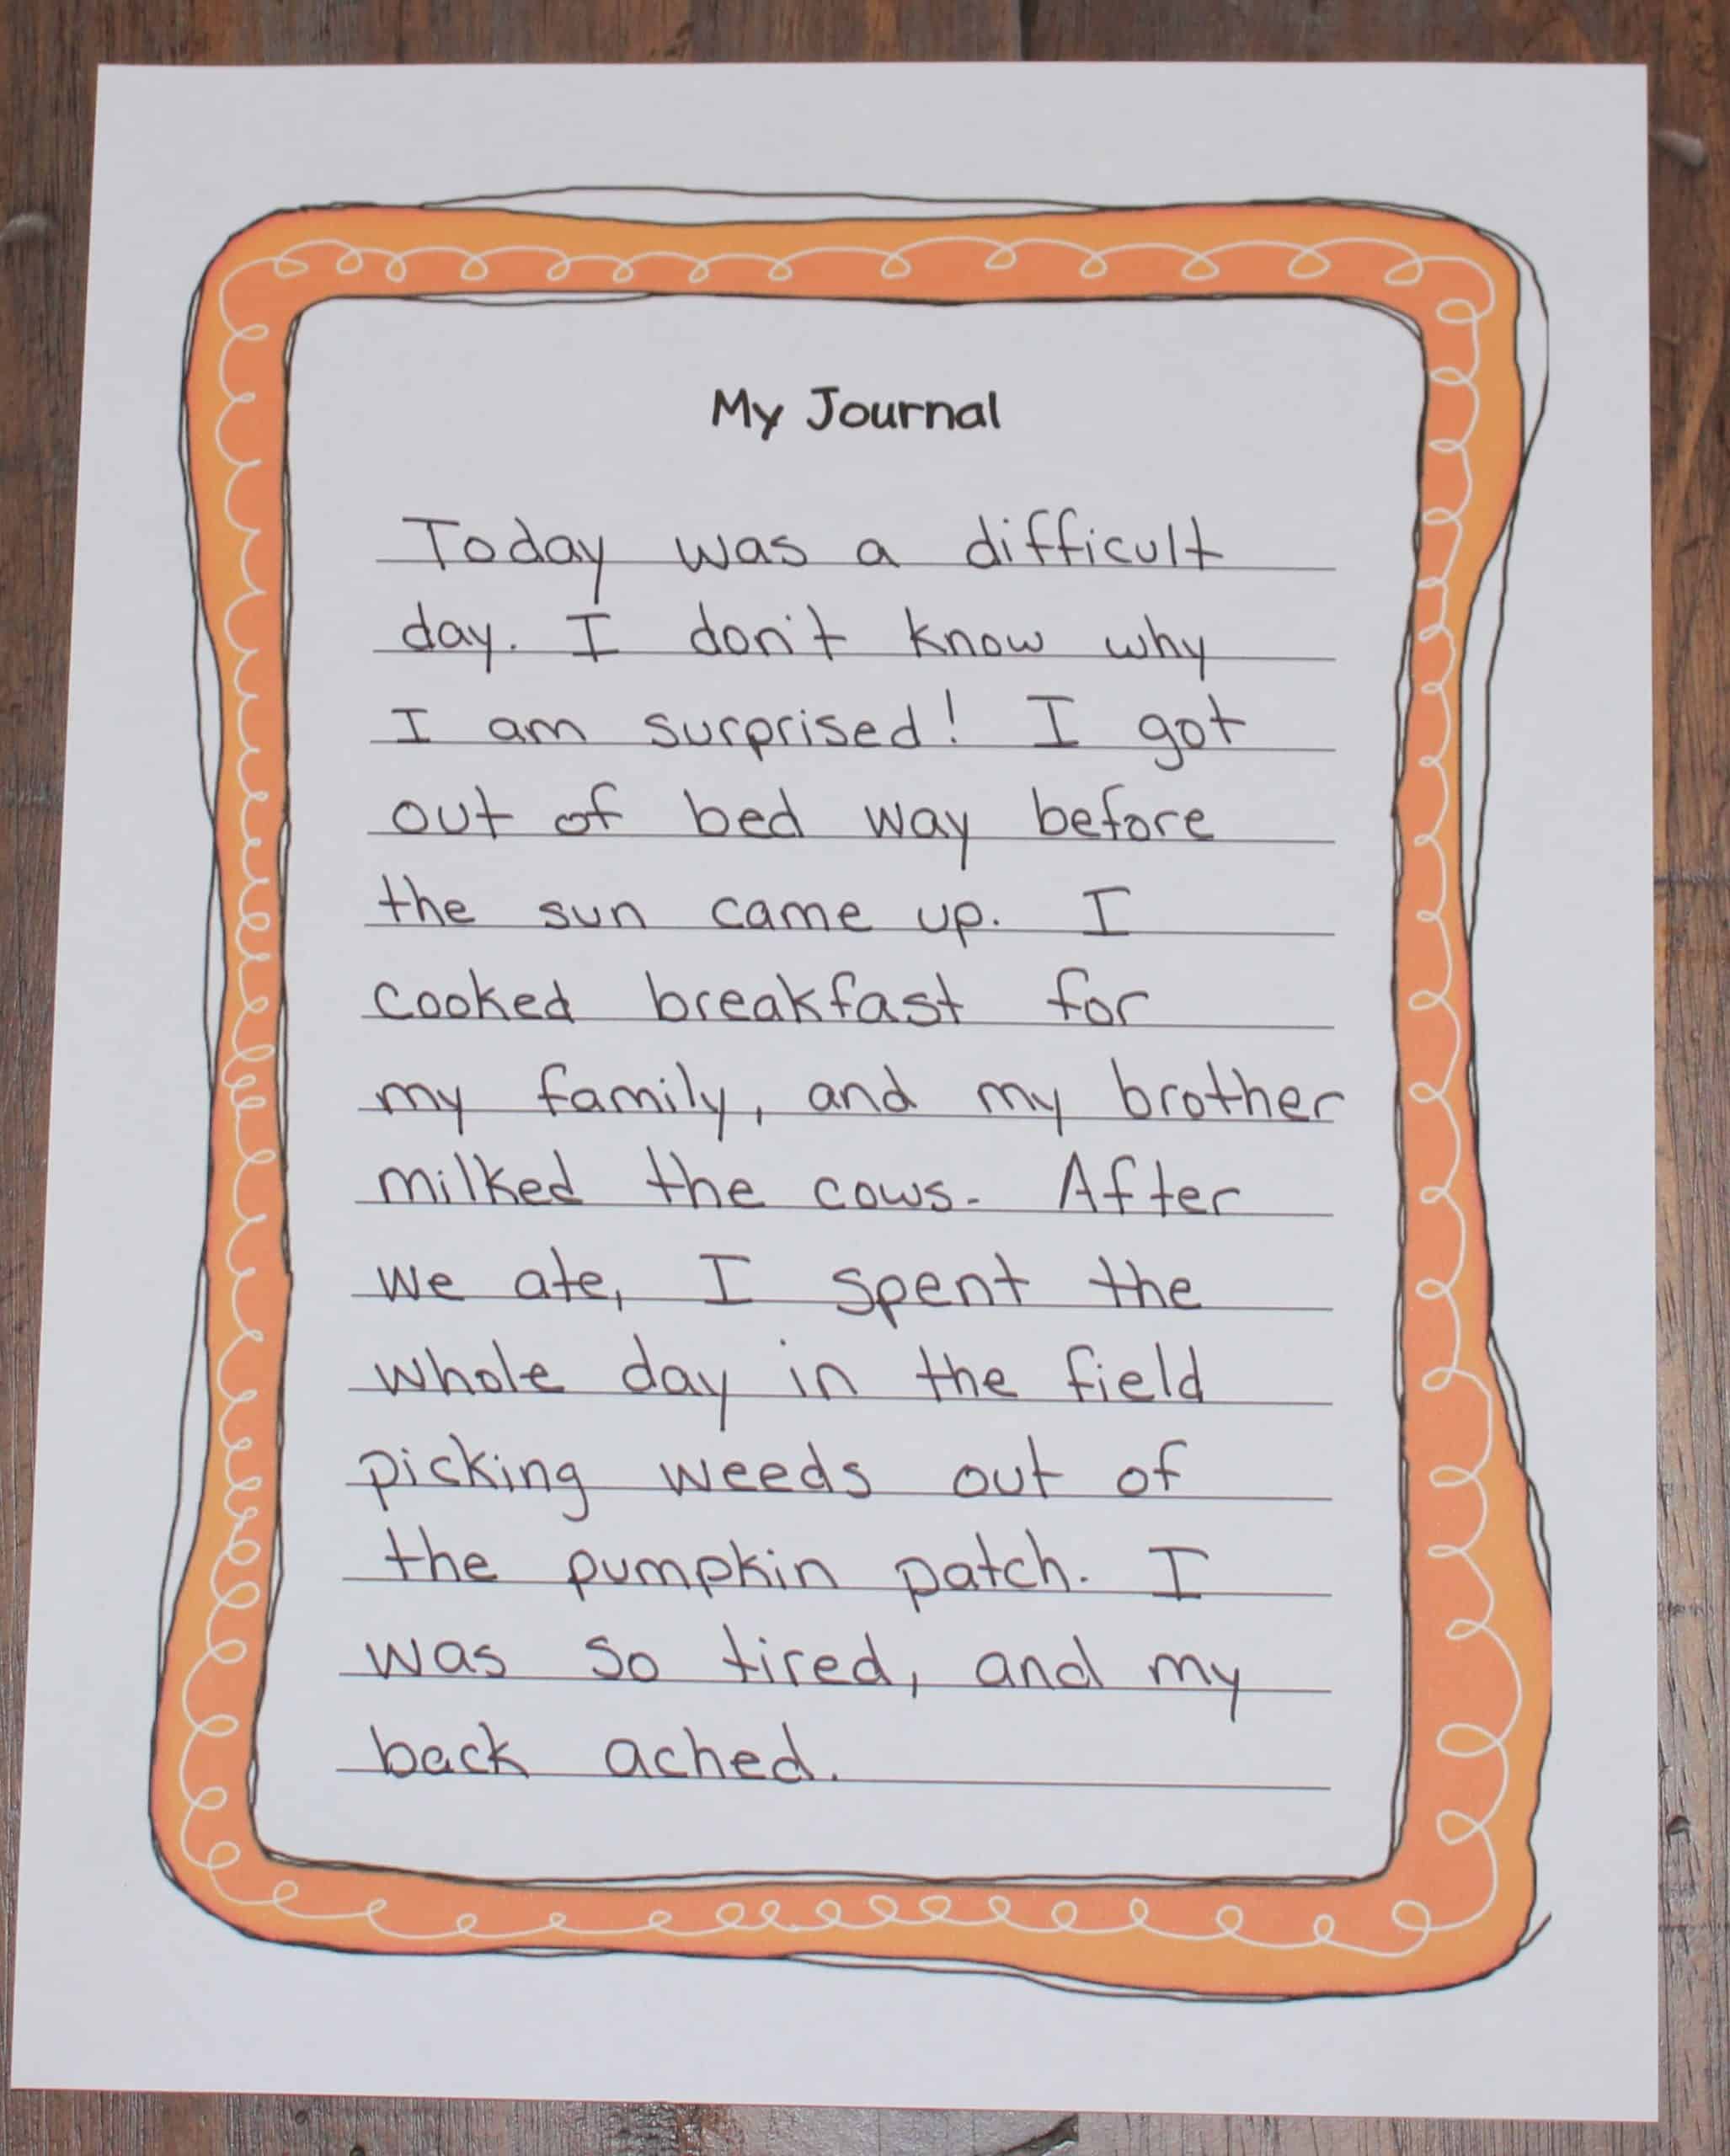 My Journal
Today was a difficult
day. I don't know why
I am surprised! I got
out of bed way before
the sun came up. I
cooked breakfast for
my family, and my brother
milked the cows. After
we ate, I spent the
whole day in the field
picking weeds out of
the pumpkin patch. I
was so tired, and my
back ached.